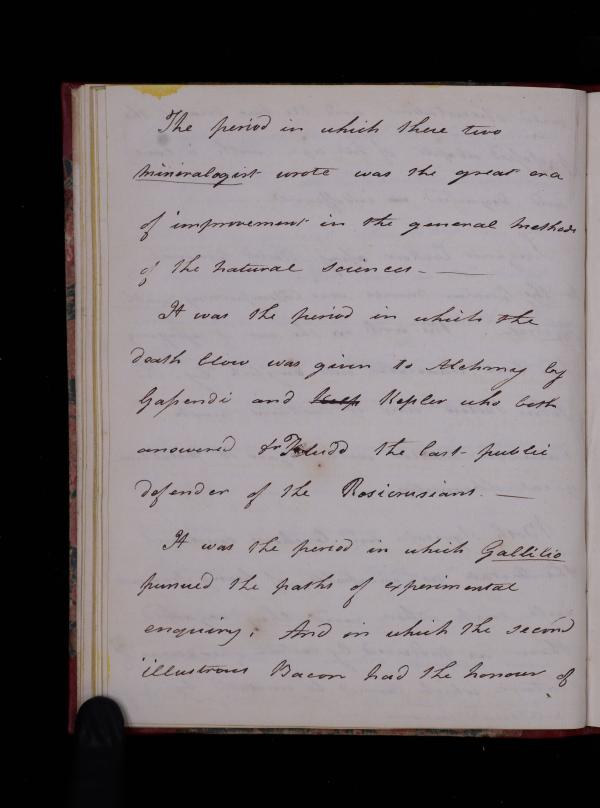 The period in which these two
mineralogist wrote was the great era
of improvement in the general methods
of the natural sciences. —
It was the period in which the
death blow was given to Alchemy by
Gassendi and Kepler who both
answered Dr Fludd the last public
defender of the Rosicrusians. —
It was the period in which Gallilio
pursued the paths of experimental
enquiry; And in which the second
illustrous Bacon had the honour of